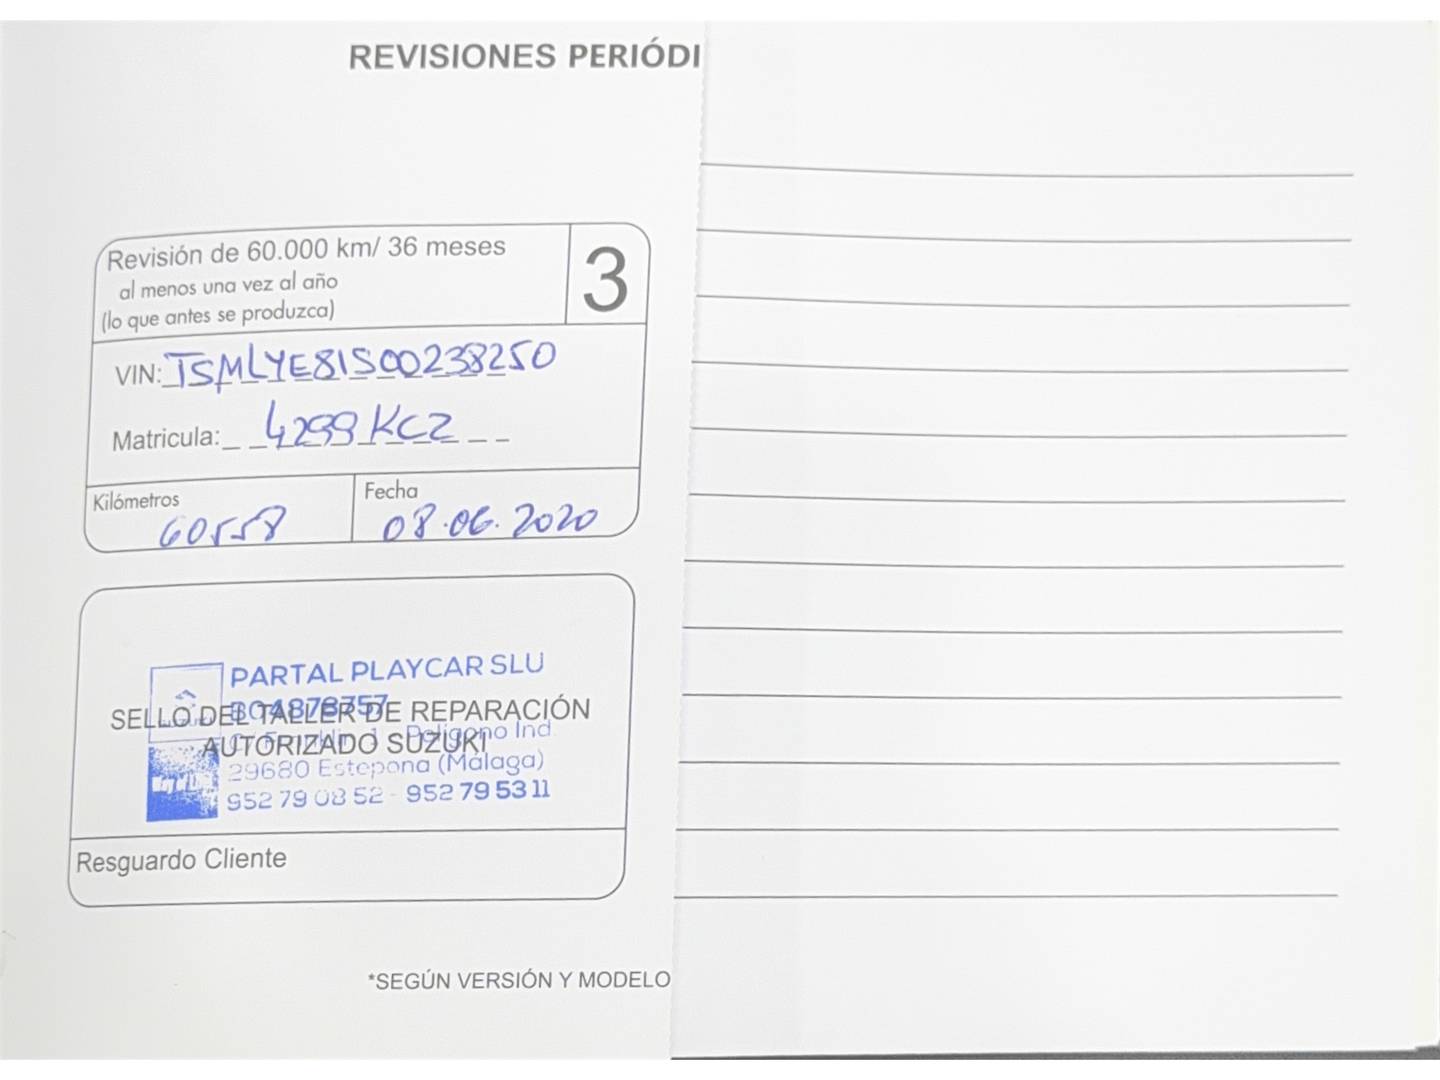 REVISIONES PERIÓDI
Revisión de 60.000 km/ 36 meses
al menos una vez al año
(lo que antes se produzca)
3
VIN: TSMLYE81S00238250
Matricula: 4299 KCZ
Kilómetros
60558
Fecha
08.06.2020
PARTAL PLAYCAR SLU
B04878757
SELLO DEL TALLER DE REPARACIÓN
AUTORIZADO SUZUKI
1 Polígono Ind.
29680 Estepona (Málaga)
952 79 08 52 - 952 79 53 11
Resguardo Cliente
*SEGÚN VERSIÓN Y MODELO